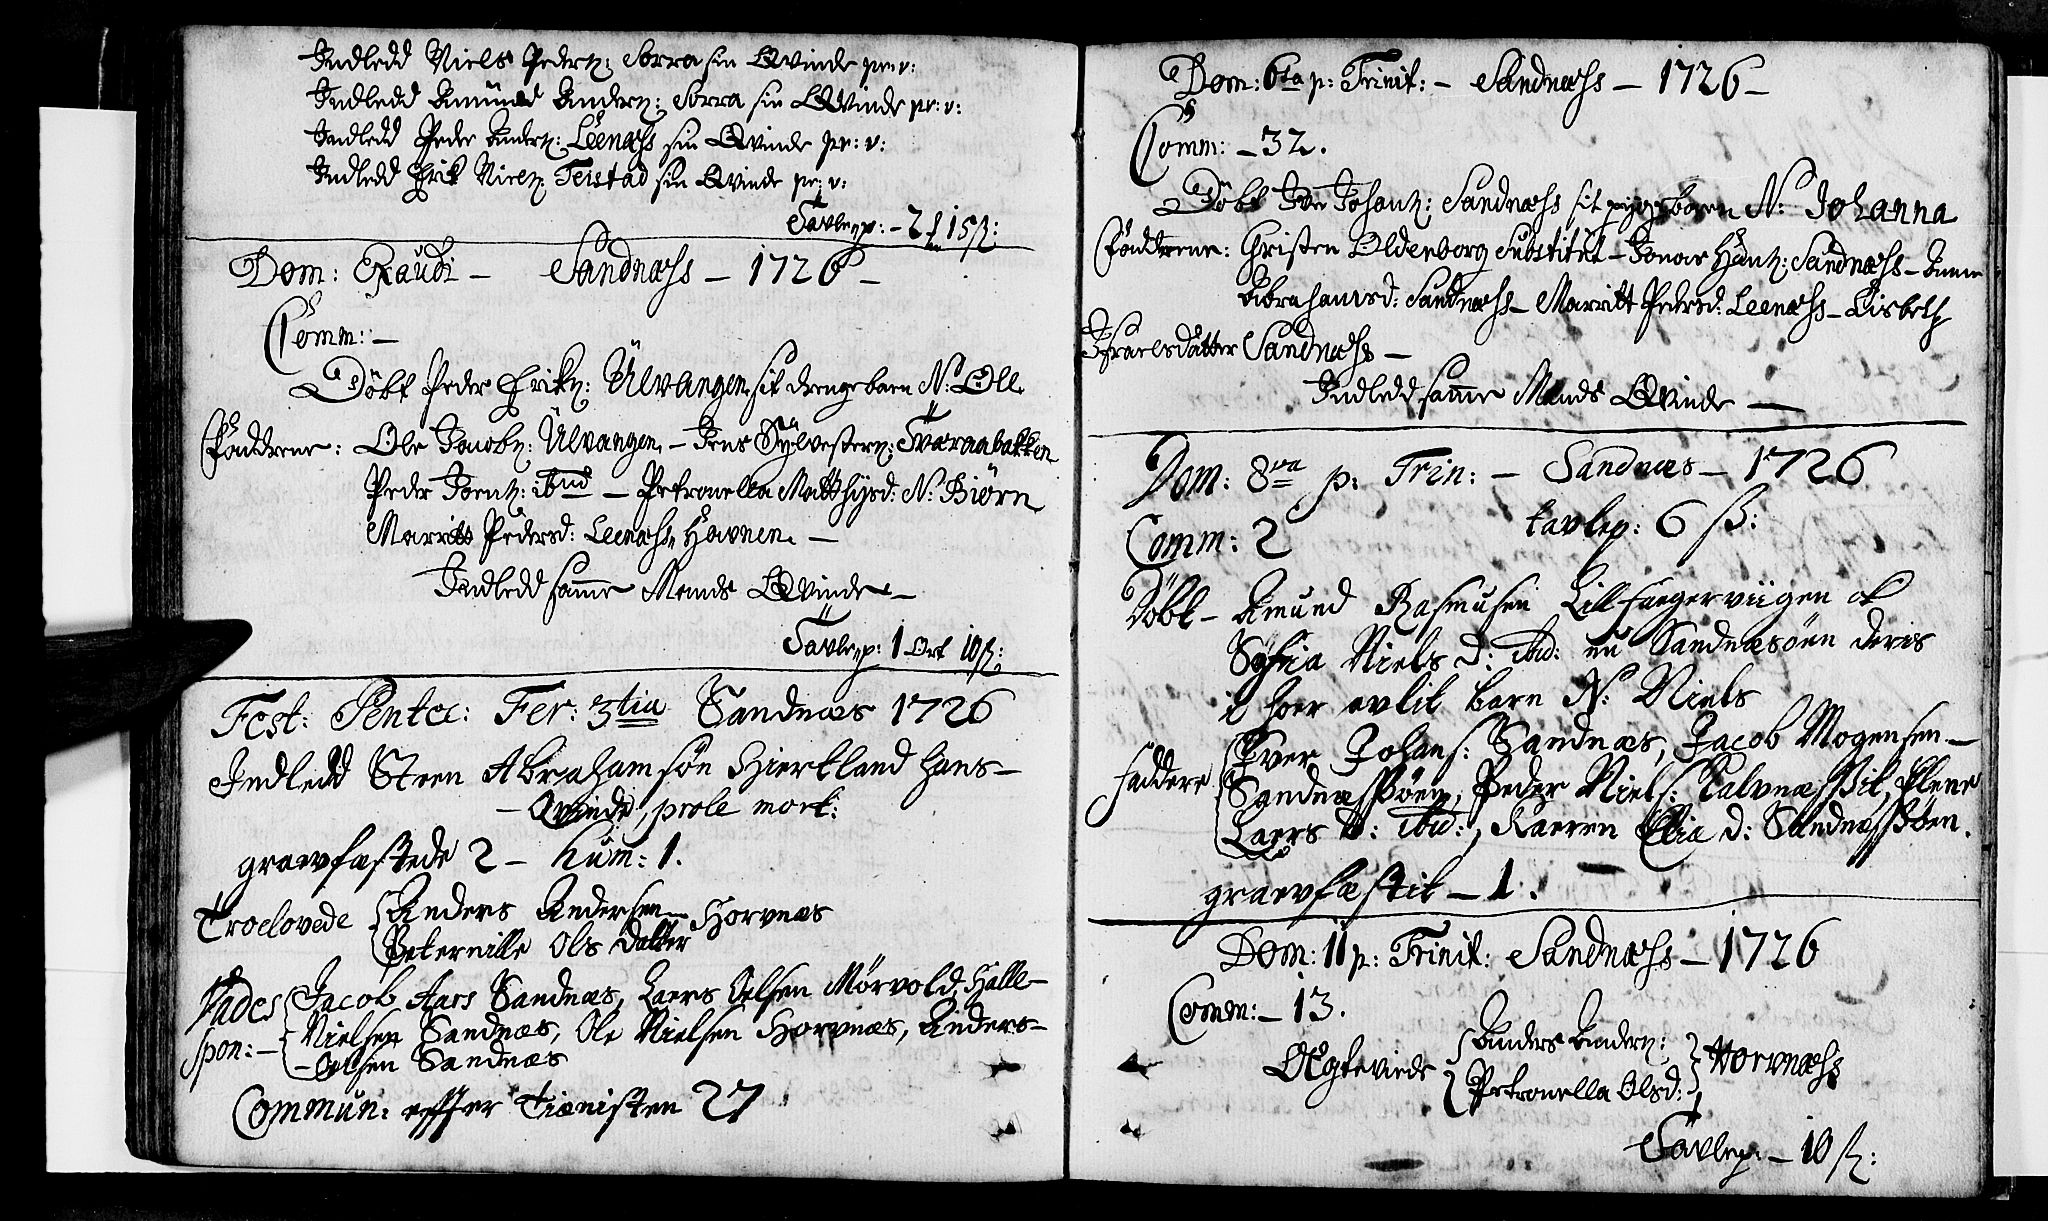 Indledd Niels Peders: Sørra sin Qvinde pr: v:
Indledd Amünd Anders: Sørra sin Qvinde pr: v:
Indledd Peder Anders: Leenæss sin Qvinde pr: v:
Indledd Erik Niels: Teistad sin Qvinde pr: v:
Tavlep: - 2 15 ß:
Dom: Exaudi - Sandnæss - 1726 -
Comm: -
Döbt Peder Eriks: Ülvangen sit drengebarn N: Ole
Faddrene: Ole Jacobs: Ülvangen - Jens Sÿlvesters: Tværaabakken
Peder Joens: ibid - Petronella Matthysd: N: Biørn
Marritt Pedersd: Leenæss Havnen. -
Indledd samme Mands Qvinde -
Tavlep: 1 Ort 10 ß:
Fest: Pentec: Fer: 3tia Sandnæs 1726
Indledd Steen Abrahamsøn Hiertland hans -
- Qvinde, prole mort:
graevfæstede 2 - hüm: 1.
Troelovede Anders Andersen Horvnæs
Peternille Ols datter
Vades Jacob Aars Sandnæs, Laers Olsen Mørvold, Halle -
spon: - Nielsen Sandnæs, Ole Nielsen Horvnæs, Anders -
- Olsen Sandnæs
Commun: effter Tienisten 27
Dom: 6ta p: Trinit: - Sandnæss - 1726 -
Comm: - 32.
Döbt Iver Johans: Sandnæss sit pigebarn N: Johanna
Faddrene: Christen Oldenborg Substitut - Jonas Hans: Sandnæss - Anne
Abrahamsd: Sandnæss - Marritt Pedersd: Leenæss - Lisbeth
Israelsdatter Sandnæss -
Indledd samme Mands Qvinde -
Dom: 8va p: Trin: - Sandnæs - 1726
Comm: 2 tavlep: 6 ß:
Döbt - Amund Rasmusen Lill Faegerviigen ok
Niels d: ibid: nu Sandnæsöen deris
i hoer avlit barn N: Niels
Faddere Iver Johans: Sandnæs, Jacob Mogensen -
Sandnæssöen, Peder Niels:
Laers d: ibid:, Karren Elia d: Sandnæssöen.
graevfæstit - 1.
Dom: 11 p: Trinit: Sandnæss - 1726
Comm: - 13.
Ægteviede Anders Anders: Horvnæss
Petronella Olsd:
Tavlep: - 10 ß: